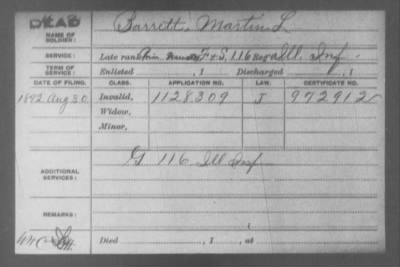 DEAD
NAME OF SOLDIER: Barrett, Martin L
SERVICE: Late rank Prin Musc, F & S, 116 Reg't Ill. Inf
TERM OF SERVICE: Enlisted , 1 Discharged , 1
DATE OF FILING. CLASS. APPLICATION NO. LAW. CERTIFICATE NO.
1892 Aug 30. Invalid, 1128309 J 972912
Widow,
Minor,
G 116 Ill Inf
ADDITIONAL SERVICES:
REMARKS:
Died , 1 , at